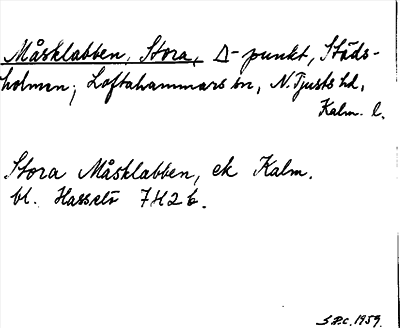 Måsklabben, Stora, Δ-punkt, Städs-
holmen; Loftahammars sn, N. Tjusts hd,
Kalm. l.
Stora Måsklabben, ek Kalm.
bl. Hasselö 7H2b.
1959.